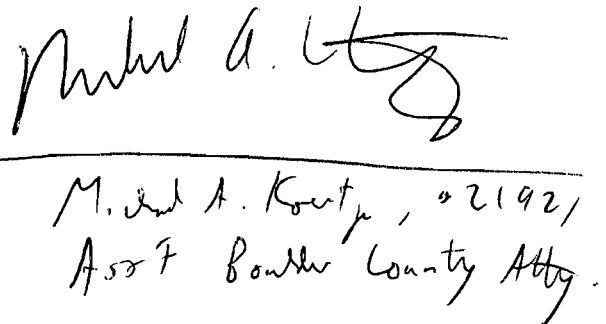 Michael A.
Michael A. Koertje, #21921
Asst Boulder County Atty.